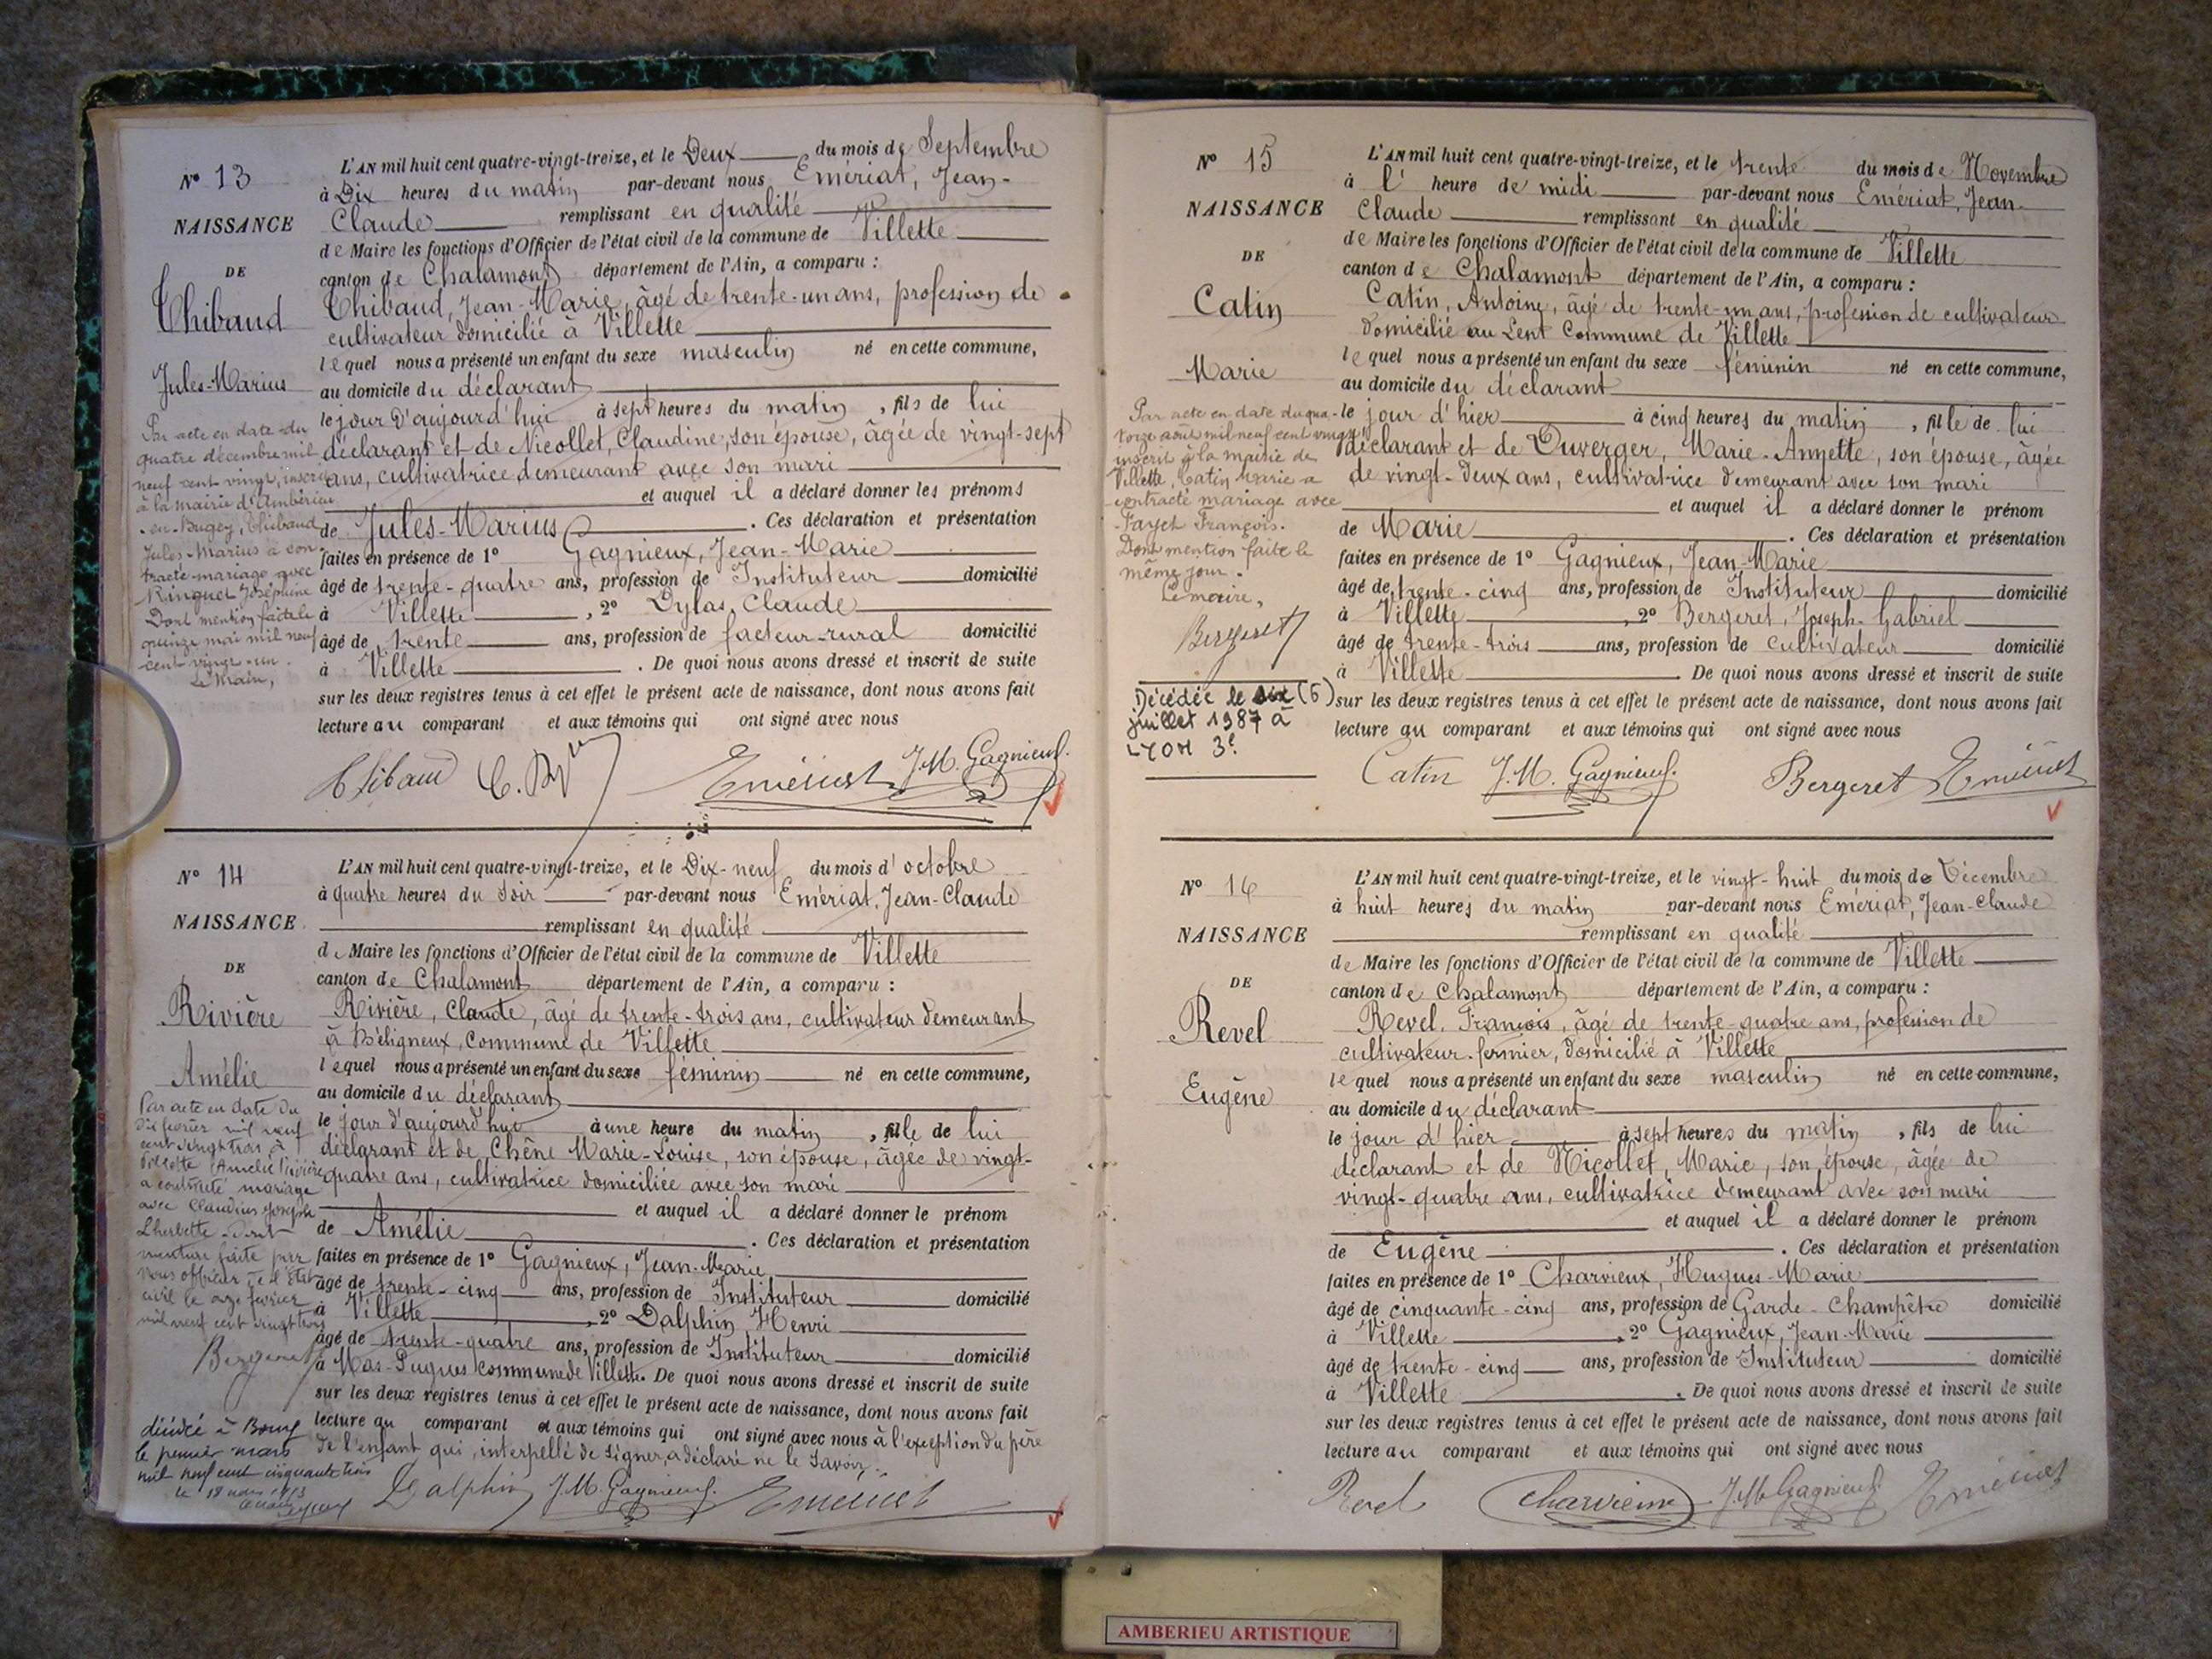 N° 13
NAISSANCE
DE
Thibaud
Jules-Marius
Par acte en date du
quatre décembre mil
neuf cent vingt, inscrit
à la mairie d'Ambérieu
-en-Bugey, Thibaud
Jules-Marius a con-
tracté mariage avec
Ringuet Joséphine
Dont mention faite le
quinze mai mil neuf
cent vingt-un.
Le Maire,
L'AN mil huit cent quatre-vingt-treize, et le Deux du mois de Septembre
à Dix heures du matin par-devant nous Emériat, Jean-
Claude remplissant en qualité
de Maire les fonctions d'Officier de l'état civil de la commune de Villette
canton de Chalamont département de l'Ain, a comparu :
Thibaud, Jean-Marie, âgé de trente-un ans, profession de
cultivateur domicilié à Villette
lequel nous a présenté un enfant du sexe masculin né en cette commune,
au domicile du déclarant
le jour d'aujourd'hui à sept heures du matin, fils de lui
déclarant et de Nicollet, Claudine, son épouse, âgée de vingt-sept
ans, cultivatrice demeurant avec son mari
et auquel il a déclaré donner les prénoms
de Jules-Marius. Ces déclaration et présentation
faites en présence de 1° Gagnieux, Jean-Marie
âgé de trente-quatre ans, profession de Instituteur domicilié
à Villette, 2° Dylas, Claude
âgé de trente ans, profession de facteur-rural domicilié
à Villette. De quoi nous avons dressé et inscrit de suite
sur les deux registres tenus à cet effet le présent acte de naissance, dont nous avons fait
lecture au comparant et aux témoins qui ont signé avec nous
Thibaud Emériat J.M. Gagnieux
N° 14
NAISSANCE
DE
Rivière
Amélie
Par acte en date du
dix février mil neuf
cent vingt trois à
Villette Amélie Rivière
a contracté mariage
avec Claudius Joseph
Lherbette. Dont
mention faite par
nous officier de l'Etat
civil le onze février
mil neuf cent vingt trois
Bergeret
décédé à Bourg
le premier mars
mil neuf cent cinquante trois
L'AN mil huit cent quatre-vingt-treize, et le Dix-neuf du mois d'octobre
à quatre heures du soir par-devant nous Emériat, Jean-Claude
remplissant en qualité
de Maire les fonctions d'Officier de l'état civil de la commune de Villette
canton de Chalamont département de l'Ain, a comparu :
Rivière, Claude, âgé de trente-trois ans, cultivateur demeurant
à Béligneux, Commune de Villette
lequel nous a présenté un enfant du sexe féminin né en cette commune,
au domicile du déclarant
le jour d'aujourd'hui à une heure du matin, fille de lui
déclarant et de Chêne Marie-Louise, son épouse, âgée de vingt-
quatre ans, cultivatrice domiciliée avec son mari
et auquel il a déclaré donner le prénom
de Amélie. Ces déclaration et présentation
faites en présence de 1° Gagnieux, Jean-Marie
âgé de trente-cinq ans, profession de Instituteur domicilié
à Villette, 2° Dalphin Henri
âgé de trente-quatre ans, profession de Instituteur domicilié
à Mas-Pugues commune de Villette. De quoi nous avons dressé et inscrit de suite
sur les deux registres tenus à cet effet le présent acte de naissance, dont nous avons fait
lecture au comparant et aux témoins qui ont signé avec nous à l'exception du père
de l'enfant qui, interpellé de signer, a déclaré ne le savoir.
Dalphin J.M. Gagnieux Emériat
N° 15
NAISSANCE
DE
Catin
Marie
Par acte en date du qua-
torze août mil neuf cent vingt
inscrit à la mairie de
Villette, Catin Marie a
contracté mariage avec
Fayet François.
Dont mention faite le
même jour.
Le maire,
Bergeret
Décédée le six (6)
juillet 1987 à
LYON 3e
L'AN mil huit cent quatre-vingt-treize, et le trente du mois de Novembre
à l' heure de midi par-devant nous Emériat, Jean-
Claude remplissant en qualité
de Maire les fonctions d'Officier de l'état civil de la commune de Villette
canton de Chalamont département de l'Ain, a comparu :
Catin, Antoine, âgé de trente-un ans, profession de cultivateur
domicilié au Lent Commune de Villette
lequel nous a présenté un enfant du sexe féminin né en cette commune,
au domicile du déclarant
le jour d'hier à cinq heures du matin, fille de lui
déclarant et de Duverger, Marie-Annette, son épouse, âgée
de vingt-deux ans, cultivatrice demeurant avec son mari
et auquel il a déclaré donner le prénom
de Marie. Ces déclaration et présentation
faites en présence de 1° Gagnieux, Jean-Marie
âgé de trente-cinq ans, profession de Instituteur domicilié
à Villette, 2° Bergeret, Joseph-Gabriel
âgé de trente-trois ans, profession de Cultivateur domicilié
à Villette. De quoi nous avons dressé et inscrit de suite
sur les deux registres tenus à cet effet le présent acte de naissance, dont nous avons fait
lecture au comparant et aux témoins qui ont signé avec nous
Catin J.M. Gagnieux Bergeret Emériat
N° 16
NAISSANCE
DE
Revel
Eugène
L'AN mil huit cent quatre-vingt-treize, et le vingt-huit du mois de Décembre
à huit heures du matin par-devant nous Emériat, Jean-Claude
remplissant en qualité
de Maire les fonctions d'Officier de l'état civil de la commune de Villette
canton de Chalamont département de l'Ain, a comparu :
Revel, François, âgé de trente-quatre ans, profession de
cultivateur-fermier, domicilié à Villette
lequel nous a présenté un enfant du sexe masculin né en cette commune,
au domicile du déclarant
le jour d'hier à sept heures du matin, fils de lui
déclarant et de Nicollet, Marie, son épouse, âgée de
vingt-quatre ans, cultivatrice demeurant avec son mari
et auquel il a déclaré donner le prénom
de Eugène. Ces déclaration et présentation
faites en présence de 1° Charvieux, Hugues-Marie
âgé de cinquante-cinq ans, profession de Garde-Champêtre domicilié
à Villette, 2° Gagnieux, Jean-Marie
âgé de trente-cinq ans, profession de Instituteur domicilié
à Villette. De quoi nous avons dressé et inscrit de suite
sur les deux registres tenus à cet effet le présent acte de naissance, dont nous avons fait
lecture au comparant et aux témoins qui ont signé avec nous
Revel Charvieux J.M. Gagnieux Emériat
AMBERIEU ARTISTIQUE